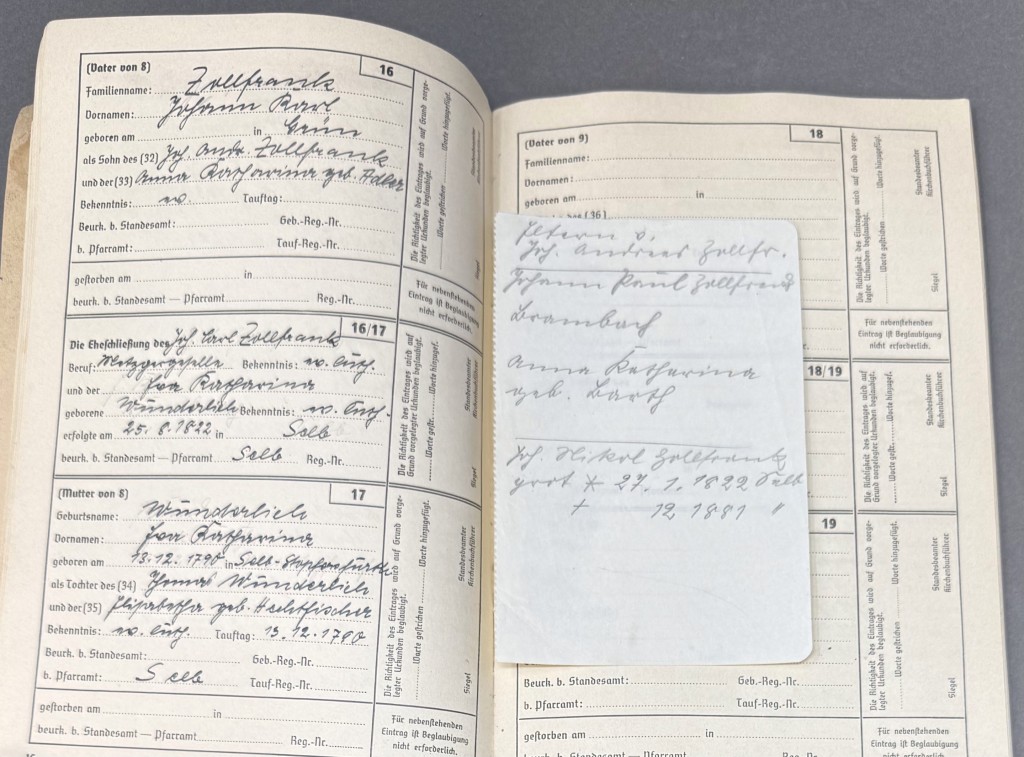 (Vater von 8) 16
Familienname: Zollfrank
Vornamen: Johann Karl
geboren am in Grün
als Sohn des (32) Joh. Andr. Zollfrank
und der (33) Anna Katharina geb. Adler
Bekenntnis: ev. Tauftag:
Beurk. b. Standesamt: Geb.-Reg.-Nr.
b. Pfarramt: Tauf-Reg.-Nr.
gestorben am in
beurk. b. Standesamt — Pfarramt Reg.-Nr.
Die Richtigkeit des Eintrages wird auf Grund vorge-
legter Urkunden beglaubigt.
Worte gestrichen Worte hinzugefügt.
Siegel
Standesbeamter
Kirchenbuchführer
Für nebenstehenden
Eintrag ist Beglaubigung
nicht erforderlich.
16/17
Die Eheschließung des Joh. Carl Zollfrank
Beruf: Metzgergeselle Bekenntnis: ev. luth.
und der Eva Katharina
geborene Wunderlich Bekenntnis: ev. luth.
erfolgte am 25.8.1822 in Selb
beurk. b. Standesamt — Pfarramt Selb Reg.-Nr.
Die Richtigkeit des Eintrages wird auf
Grund vorgelegter Urkunden beglaubigt.
Worte gestr. Worte hinzugef.
Siegel
Standesbeamter
Kirchenbuchführer
(Mutter von 8) 17
Geburtsname: Wunderlich
Vornamen: Eva Katharina
geboren am 13.12.1790 in Selb-
als Tochter des (34) Thomas Wunderlich
und der (35) Elisabetha geb. Hechtfischer
Bekenntnis: ev. luth. Tauftag: 13.12.1790
Beurk. b. Standesamt: Geb.-Reg.-Nr.
b. Pfarramt: Selb Tauf-Reg.-Nr.
gestorben am in
beurk. b. Standesamt — Pfarramt Reg.-Nr.
Die Richtigkeit des Eintrages wird auf Grund vorge-
legter Urkunden beglaubigt.
Worte gestrichen Worte hinzugefügt.
Siegel
Standesbeamter
Kirchenbuchführer
Für nebenstehenden
Eintrag ist Beglaubigung
nicht erforderlich.
(Vater von 9) 18
Familienname:
Vornamen:
geboren am in
des (36)
Die Richtigkeit des Eintrages wird auf Grund vorge-
legter Urkunden beglaubigt.
Worte gestrichen Worte hinzugefügt.
Siegel
Standesbeamter
Kirchenbuchführer
Für nebenstehenden
Eintrag ist Beglaubigung
nicht erforderlich.
Eltern v.
Joh. Andreas Zollfr.
Johann Paul Zollfrank
Brambach
Anna Katharina
geb. Barth
Joh. Nikol Zollfrank
* 27.1.1822 Selb
+ 12 1881 "
18/19
Die Richtigkeit des Eintrages wird auf
Grund vorgelegter Urkunden beglaubigt.
Worte gestr. Worte hinzugef.
Siegel
Standesbeamter
Kirchenbuchführer
19
Die Richtigkeit des Eintrages wird auf Grund vorge-
legter Urkunden beglaubigt.
Worte gestrichen Worte hinzugefügt.
Siegel
Standesbeamter
Kirchenbuchführer
Beurk. b. Standesamt: Geb.-Reg.-Nr.
b. Pfarramt: Tauf-Reg.-Nr.
gestorben am in
beurk. b. Standesamt — Pfarramt Reg.-Nr.
Für nebenstehenden
Eintrag ist Beglaubigung
nicht erforderlich.